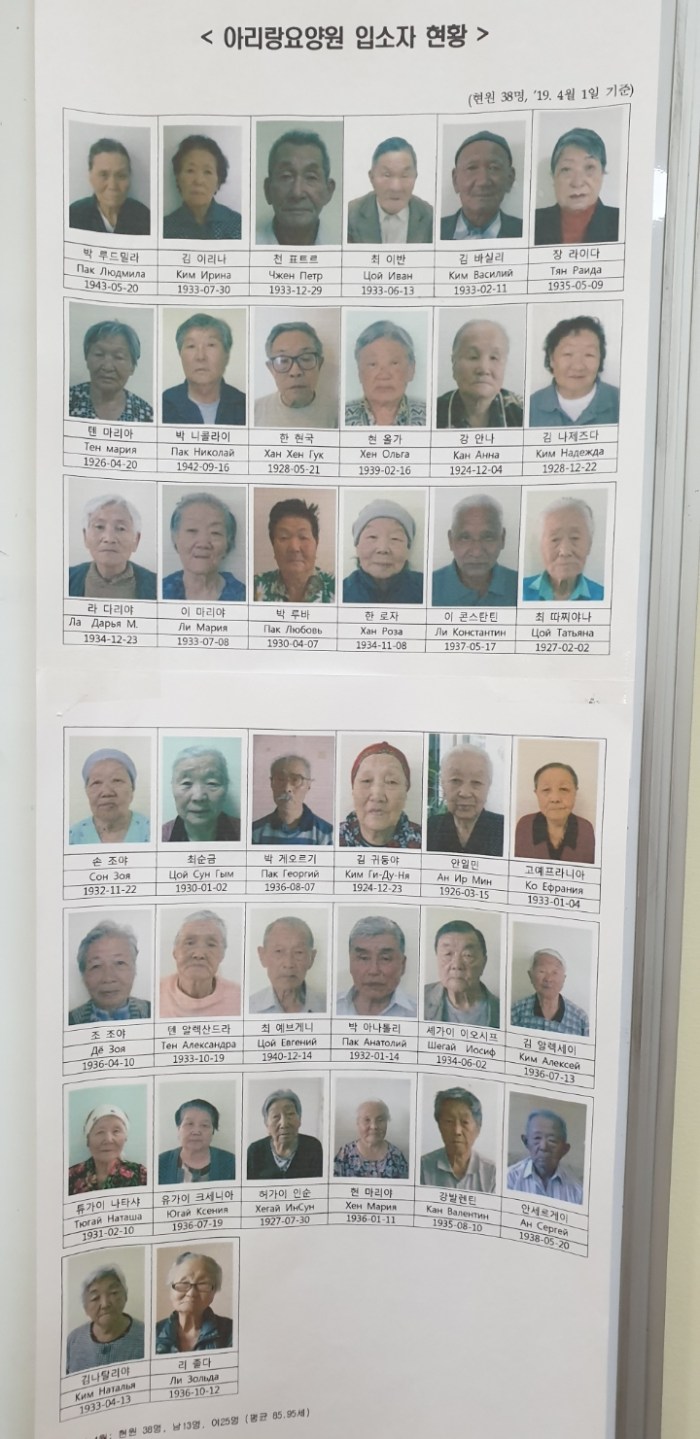 < 아리랑요양원 입소자 현황 >
(현원 38명, '19. 4월 1일 기준)
박 루드밀라 김 이리나 전 표트르 최 이반 김 바실리 장 라이다
Пак Людмила Ким Ирина Чжен Петр Цой Иван Ким Василий Тян Раида
1943-05-20 1933-07-30 1933-12-29 1933-06-13 1933-02-11 1935-05-09
텐 마리아 박 니콜라이 한 현국 현 올가 강 안나 김 나제즈다
Тен мария Пак Николай Хан Хен Гук Хен Ольга Кан Анна Ким Надежда
1926-04-20 1942-09-16 1928-05-21 1939-02-16 1924-12-04 1928-12-22
라 다리야 이 마리야 박 루바 한 로자 이 콘스탄틴 최 따찌야나
Ла Дарья М. Ли Мария Пак Любовь Хан Роза Ли Константин Цой Татьяна
1934-12-23 1933-07-08 1930-04-07 1934-11-08 1937-05-17 1927-02-02
손 조야 최순금 박 게오르기 김 귀둥야 안일민 고예프라니아
Сон Зоя Цой Сун Гым Пак Георгий Ким Ги-Ду-Ня Ан Ир Мин Ко Ефрания
1932-11-22 1930-01-02 1936-08-07 1924-12-23 1926-03-15 1933-01-04
조 조야 텐 알렉산드라 최 예브게니 박 아나톨리 세가이 이오시프 김 알렉세이
Дё Зоя Тен Александра Цой Евгений Пак Анатолий Шегай Иосиф Ким Алексей
1936-04-10 1933-10-19 1940-12-14 1932-01-14 1934-06-02 1936-07-13
튜가이 나타샤 유가이 크세니아 허가이 인순 현 마리야 강발렌틴 안세르게이
Тюгай Наташа Югай Ксения Хегай ИнСун Хен Мария Кан Валентин Ан Сергей
1931-02-10 1936-07-19 1927-07-30 1936-01-11 1935-08-10 1938-05-20
김나탈리야 리 졸다
Ким Наталья Ли Зольда
1933-04-13 1936-10-12
현원 38명, 남13명, 여25명 (평균 85.95세)